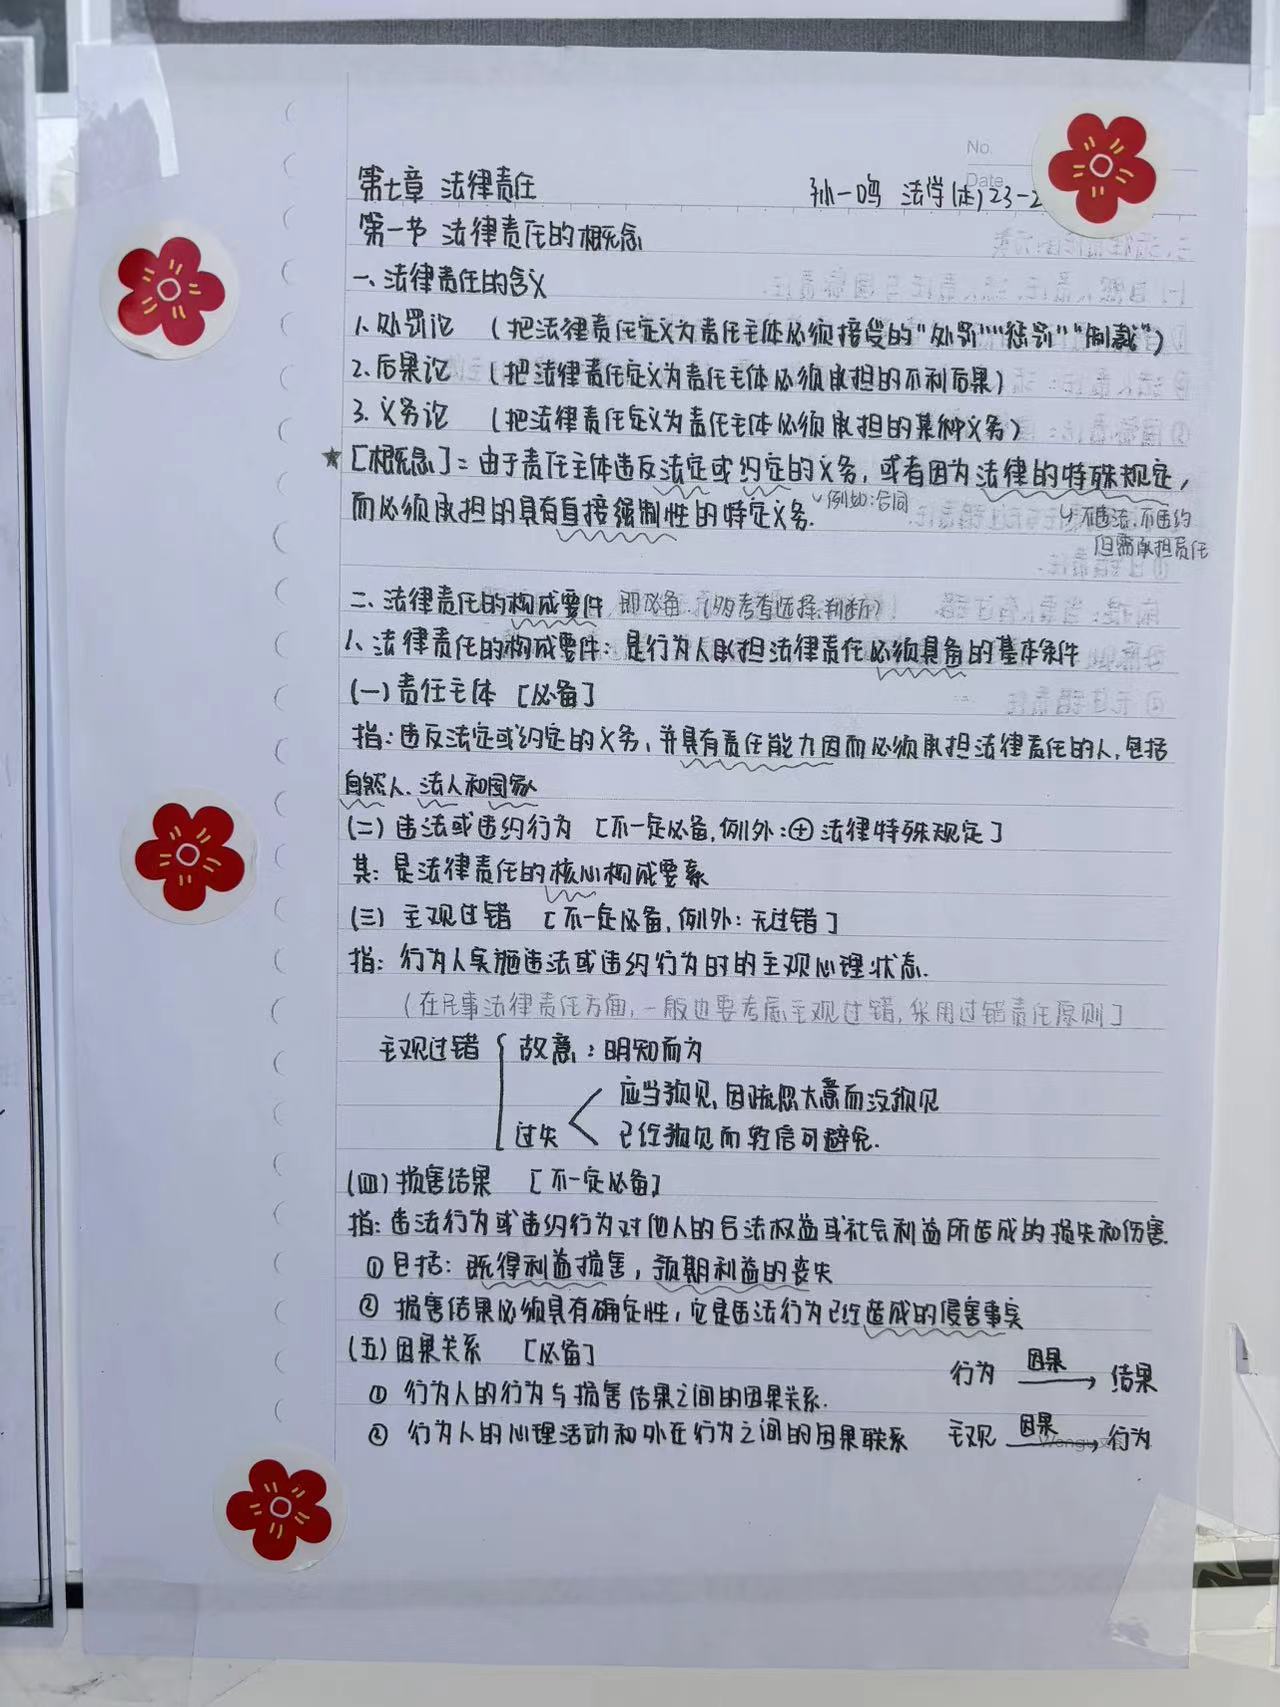 No.
Date
第七章 法律责任
孙一鸣 法学(走)23-2
第一节 法律责任的概念
一、法律责任的含义
1、处罚论 (把法律责任定义为责任主体必须接受的"处罚""惩罚""制裁")
2.后果论 (把法律责任定义为责任主体必须承担的不利后果)
3.义务论 (把法律责任定义为责任主体必须承担的某种义务)
★[概念]=由于责任主体违反法定或约定的义务,或者因为法律的特殊规定,
而必须承担的具有直接强制性的特定义务.
例如:合同
不违法,不违约
但需承担责任
二、法律责任的构成要件 即必备.(易考查选择,判断)
1、法律责任的构成要件:是行为人承担法律责任必须具备的基本条件
(一)责任主体 [必备]
指:违反法定或约定的义务,并具有责任能力因而必须承担法律责任的人,包括
自然人、法人和国家
(二)违法或违约行为 [不一定必备,例外:⊕法律特殊规定]
其:是法律责任的核心构成要素
(三)主观过错 [不一定必备,例外:无过错]
指:行为人实施违法或违约行为时的主观心理状态.
(在民事法律责任方面,一般也要考虑主观过错,采用过错责任原则]
主观过错 故意:明知而为
应当预见,因疏忽大意而没预见
过失
已经预见而轻信可避免.
(四)损害结果 [不一定必备]
指:违法行为或违约行为对他人的合法权益或社会利益所造成的损失和伤害.
①包括:既得利益损害,预期利益的丧失
②损害结果必须具有确定性,它是违法行为已经造成的侵害事实
(五)因果关系 [必备]
行为 因果→ 结果
①行为人的行为与损害结果之间的因果关系.
②行为人的心理活动和外在行为之间的因果联系 主观 因果→ 行为